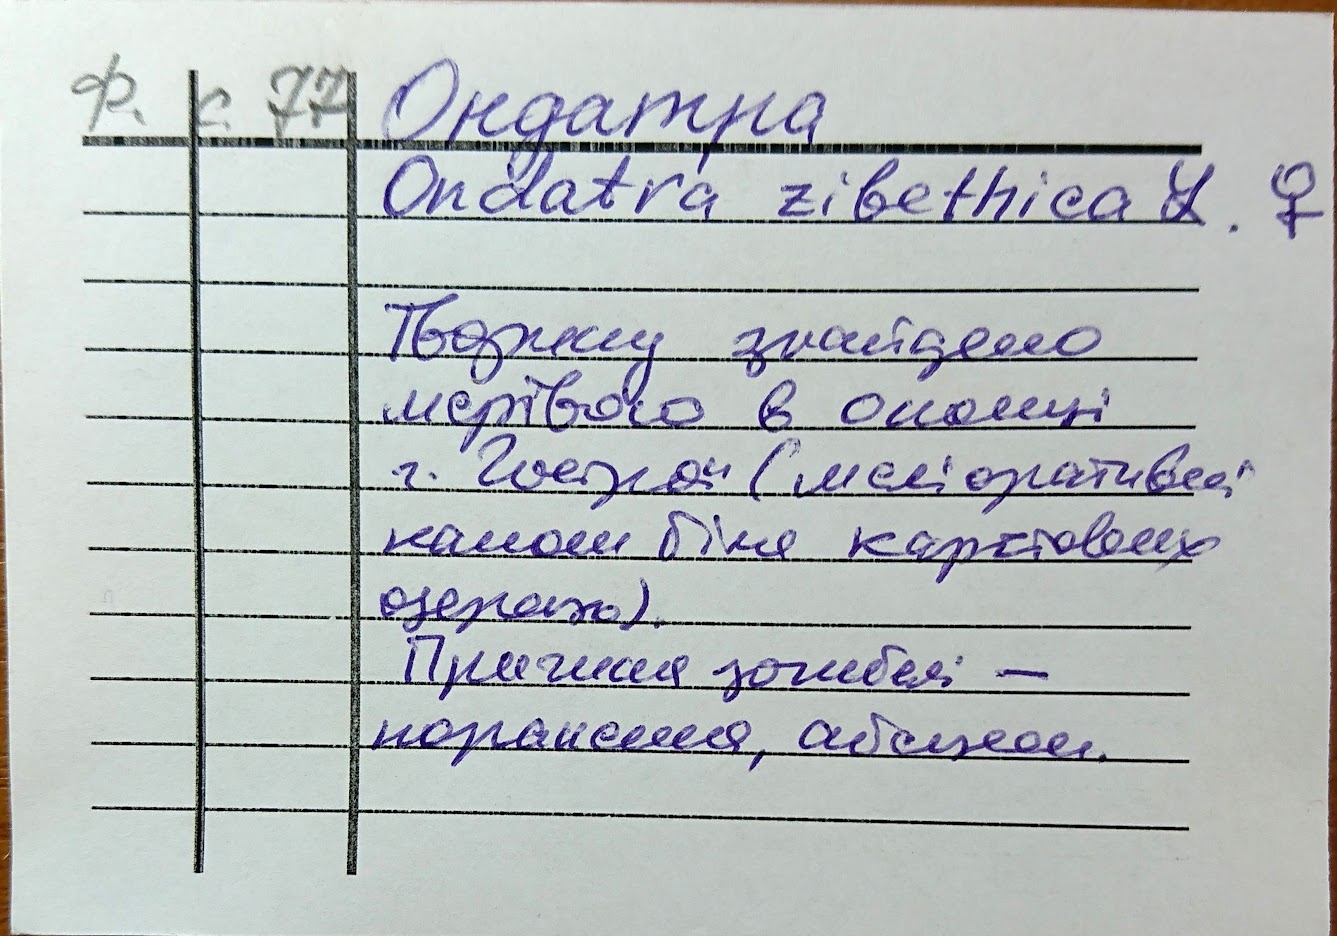 Ф. с. 77 Ондатра
Ondatra zibethica L. ♀
Тварину знайдено
мертвою в околиці
г. Гострої (меліоративні
канали біля карстових
озерах).
Причина загибелі —
поранення, абсцеси.